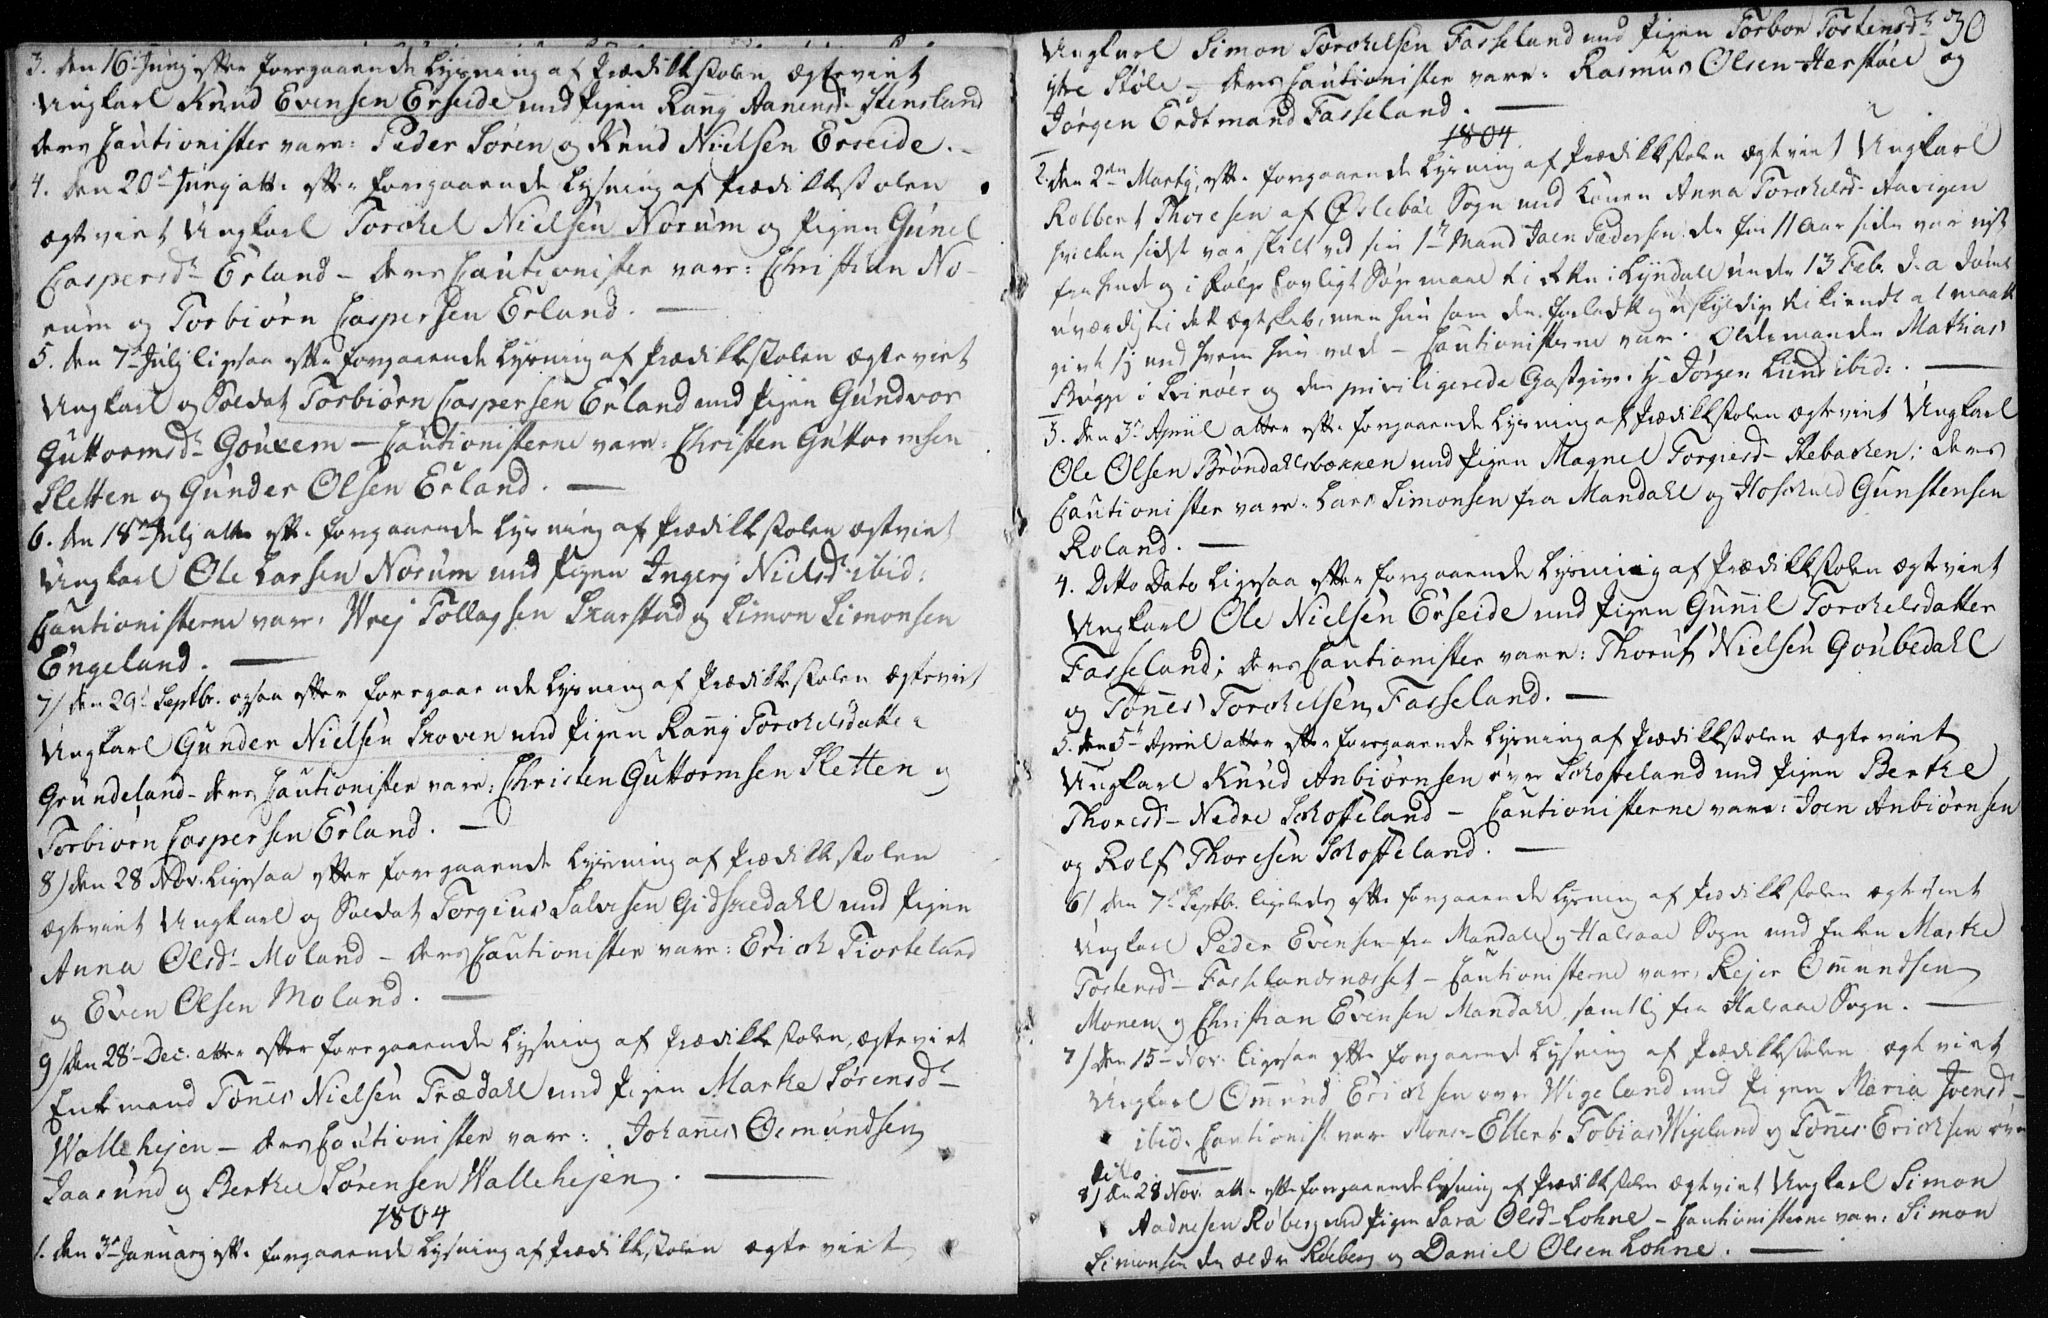 3. den 16 Junj efter foregaaende Lysning af Prædikkestolen ægteviet
Ungkarl Knud Evensen Erseide med Pigen Rang Aanensd. Stensland
deres Cautionister vare: Peder Sören og Knud Nielsen Erseide.
4. den 20de Junj att. efter foregaaende Lysning af Prædikkestolen
ægteviet Ungkarl Torchel Nielsen Norum og Pigen Gunel
Caspersdr Erland - deres Cautionister vare: Christian No-
rum og Torbiörn Caspersen Erland.
5. den 7de Julj ligesaa efter foregaaende Lysning af Prædikkestolen ægteviet
Ungkarl og Soldat Torbiörn Caspersen Erland med Pigen Gundvor
Guttormsdr Gouxem - Cautionisterne vare: Christen Guttormsen
Sletten og Gunder Olsen Erland.
6. den 18de Julj atter eft. foregaaende Lysning af Prædikkestolen ægteviet
Ungkarl Ole Larsen Norum med Pigen Ingerj Nielsdr ibid:
Cautionisterne vare: Wrej Tollagsen Skarstad og Simon Simonsen
Engeland.
7/ den 29de Septbr. ogsaa efter foregaaende Lysning af Prædikkestolen ægteviet
Ungkarl Gunder Nielsen Skoven med Pigen Rang Torchelsdatter
Grundeland - deres Cautionister vare: Christen Guttormsen Sletten og
Torbiörn Caspersen Erland.
8/ den 28 Nov. ligesaa efter foregaaende Lysning af Prædikkestolen
ægteviet Ungkarl og Soldat Torgius Salvesen Gidskedahl med Pigen
Anna Olsdr Moland - deres Cautionister vare: Erich Tiosteland
og Even Olsen Moland.
9/ den 28de Dec. atter efter foregaaende Lysning af Prædikkestolen, ægteviet
Enkemand Tönnes Nielsen Trædahl med Pigen Marthe Sörensdr
Wallehejen - deres Cautionister vare: Johannes Osmundsen
Jaasund og Berthee Sörensen Wallehejen.
1804
1. den 3de Januarj eft. foregaaende Lysning af Prædikkestolen ægteviet
30
Ungkarl Simon Torchelsen Fasseland med Pigen Torbor Tostensdr
ytre Stöle - deres Cautionister vare: Rasmus Olsen Herstöel og
Jörgen Erdtmand Fasseland.
1804
2. den 2den Martij, eft. foregaaende Lysning af Prædikkestolen ægteviet Ungkarl
Rolbert Thoresen af Ösleböe Sogn med Konen Anna Torchelsd. Aavigen
hvilken sidst var skilt ved sin 1te Mand Joen Pedersen der for 11 Aar siden var rejst
fra hende og i følge Lovligt Søgemaal ti i Lyndal under 13 Feb. d. a. dömt
uværdig til dette ægteskab, men hun som den forladte og uskyldige tilkiendt at maatte
givte sig med hvem hun vilde - Cautionisterne var: Oldermanden Mathias
Bugge i Svinöer og den priviligerede Gastgiver Hr. Jörgen Lund ibid:
3. den 3de April atter eft. foregaaende Lysning af Prædikkestolen ægteviet Ungkarl
Ole Olsen Bröndahlsbacken med Pigen Magnel Torgiersd. Stebacken: deres
Cautionister vare: Lars Simonsen fra Mandahl og Hoschuld Gunstensen
Roland.
4. Ditto Dato ligesaa efter foregaaende Lysning af Prædikkestolen ægteviet
Ungkarl Ole Nielsen Erseide med Pigen Gunil Torchelsdatter
Fasseland; deres Cautionister vare: Thoruf Nielsen Goubedahl
og Tönnes Torchelsen Fasseland.
5. den 5te April atter efter foregaaende Lysning af Prædikkestolen ægteviet
Ungkarl Knud Anbiörnsen övre Schofteland med Pigen Berthe
Thoresd. Nedre Schofteland - Cautionisterne vare: Joen Anbiörnsen
og Rolf Thoresen Schofteland.
6/ den 7de Septbr. ligeledes eft. foregaaende Lysning af Prædikkestolen ægteviet
Ungkarl Peder Evensen fra Mandals og Halsaae Sogn med Enken Marthe
Tostensd. Fasselandsnæsset - Cautionisterne vare: Rejer Omundsen
Monen og Christian Evensen Mandahl, samtlig fra Halsaae Sogn.
7/ den 15de Nov. ligesaa eft. foregaaende Lysning af Prædikkestolen ægteviet
Ungkarl Omund Erichsen övre Wigeland med Pigen Maria Joensd.
ibid. Cautionist vare Mons. Ellert Tobias Wigeland og Tönnes Erichsen övre
dito
8/ den 28 Nov. att. eft. foregaaende Lysning af Prædikkestolen ægteviet Ungkarl Simon
Aadnesen Röberg med Pigen Sara Olsd. Lohne - Cautionisterne var: Simon
Simonsen den ældre Röeberg og Daniel Olsen Lohne.